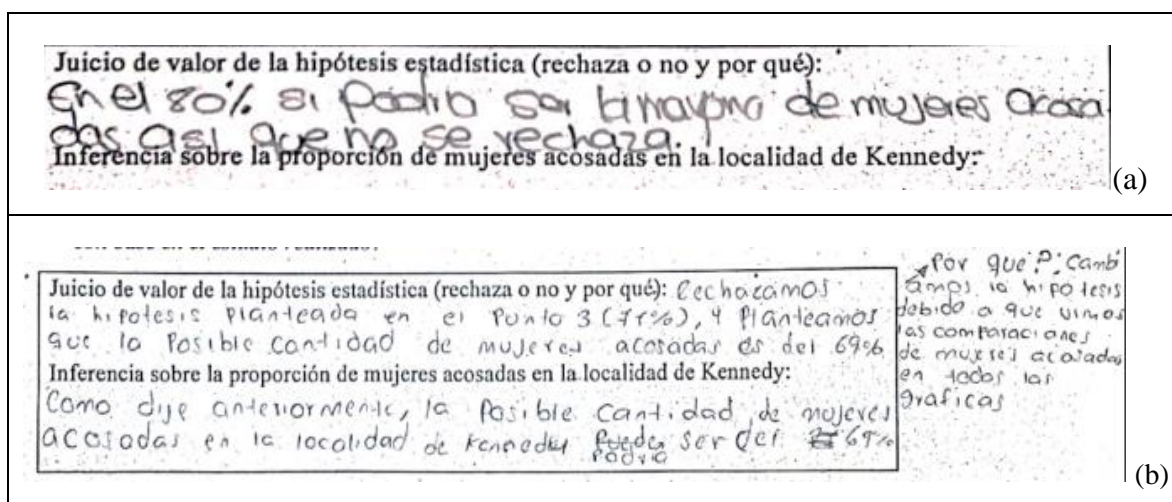 Juicio de valor de la hipótesis estadística (rechaza o no y por qué):
En el 80% si podria ser la mayoria de mujeres acosa
das asi que no se rechaza.
Inferencia sobre la proporción de mujeres acosadas en la localidad de Kennedy:
(a)
Juicio de valor de la hipótesis estadística (rechaza o no y por qué): Rechazamos
la hipotesis planteada en el Punto 3 (71%), y Planteamos
que la Posible cantidad de mujeres acosadas es del 69%
Inferencia sobre la proporción de mujeres acosadas en la localidad de Kennedy:
Como dije anteriormente, la Posible cantidad de mujeres
acosadas en la localidad de Kennedy podria ser del 69%
Por que?: camb
iamos la hipotesis
debido a que vimos
las comparaciones
de mujeres acosadas
en todas las
graficas
(b)